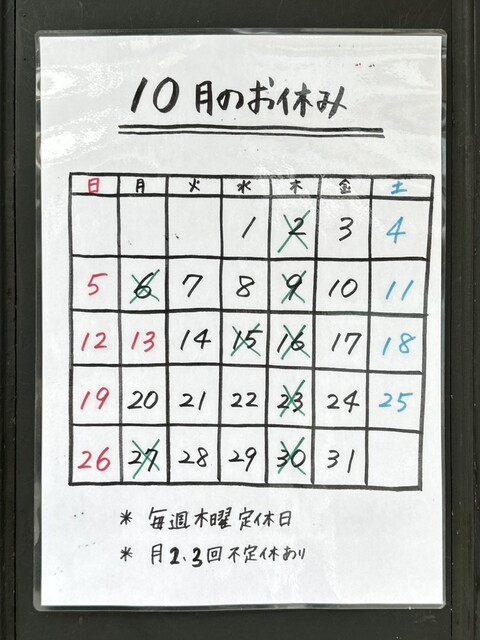 10月のお休み
日 月 火 水 木 金 土
1 2 3 4
5 6 7 8 9 10 11
12 13 14 15 16 17 18
19 20 21 22 23 24 25
26 27 28 29 30 31
* 毎週木曜定休日
* 月2.3回不定休あり